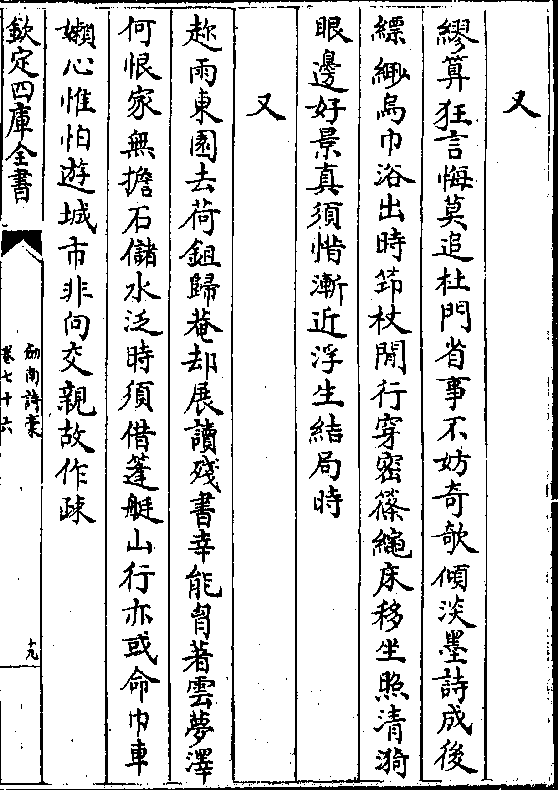 又
繆算狂言悔莫追杜門省事不妨奇欹傾淡墨詩成後
縹緲烏巾浴出時筇杖閒行穿密篠繩床移坐照清漪
眼邊好景真須惜漸近浮生結局時
又
趂雨東園去荷鉏歸菴却展讀殘書幸能胷著雲夢澤
何恨家無擔石儲水泛時須借蓬艇山行亦或命巾車
嬾心惟怕遊城市非向交親故作疎
欽定四庫全書
劒南詩稾
卷七十六
十九